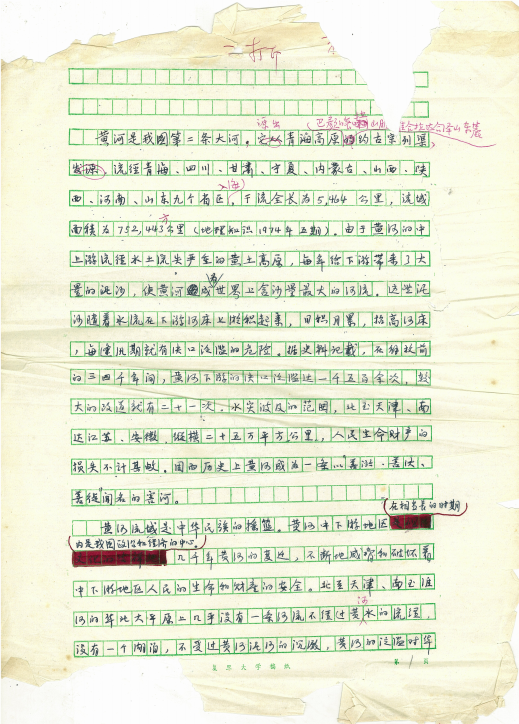 二、打斤
源出
巴颜喀拉山
黄河是我国第二条大河。它从青海高原的约古宗列渠
发源,流经青海、四川、甘肃、宁夏、内蒙古、山西、陕
入海
西、河南、山东九个省区,干流全长为5,464公里,流域
方
面积为752,443公里(地理知识1974年五期)。由于黄河的中
上游流经水土流失严重的黄土高原,每年给下游带来了大
量的泥沙,使黄河成世界上含沙量最大的河流。这些泥
沙随着水流在下游河床上淤积起来,日积月累,抬高河床
,每逢汛期就有决口泛滥的危险。据史料记载,在解放前
的三四千年间,黄河下游的决口泛滥达一千五百余次,较
大的改道就有二十一次。水灾波及的范围,北至天津、南
达江苏、安徽,纵横二十五万平方公里,人民生命财产的
损失不计其数。因而历史上黄河成为一条以“善淤、善决、
善徙”闻名的害河。
在相当长的时期
黄河流域是中华民族的摇篮。黄河中下游地区
内是我国政治和经济的中心
几千年黄河的变迁,不断地威胁和破坏着
中下游地区人民的生命和财产的安全。北至天津、南至淮
河
河的华北大平原上几乎没有一条河流不经过黄水的流经,
没有一个湖泊,不受过黄河泥沙的沉澱,黄河的泛滥对华
复旦大学稿纸
第1页